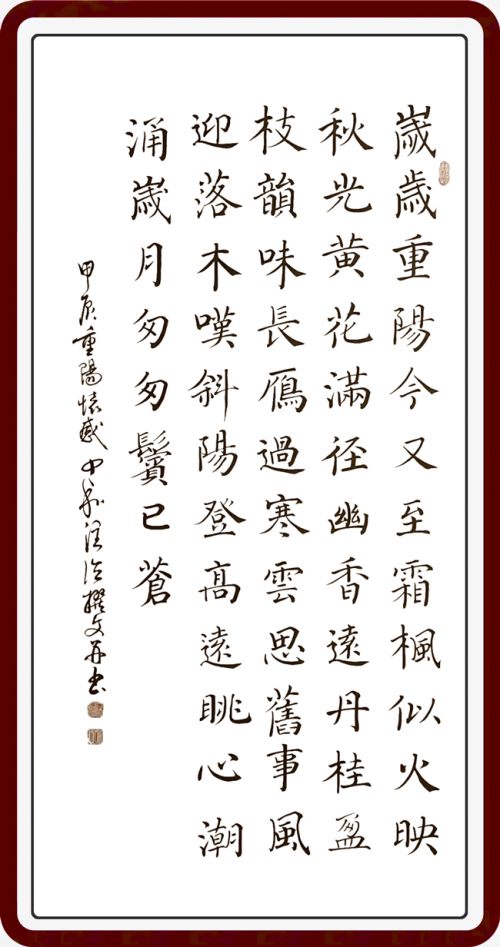 歲歲重陽今又至霜楓似火映
秋光黄花滿径幽香遠丹桂盈
枝韻味長鴈過寒雲思舊事風
迎落木嘆斜陽登髙遠眺心潮
涌歲月匆匆鬢已蒼
甲辰重陽懷感中泉汪治撰文并书